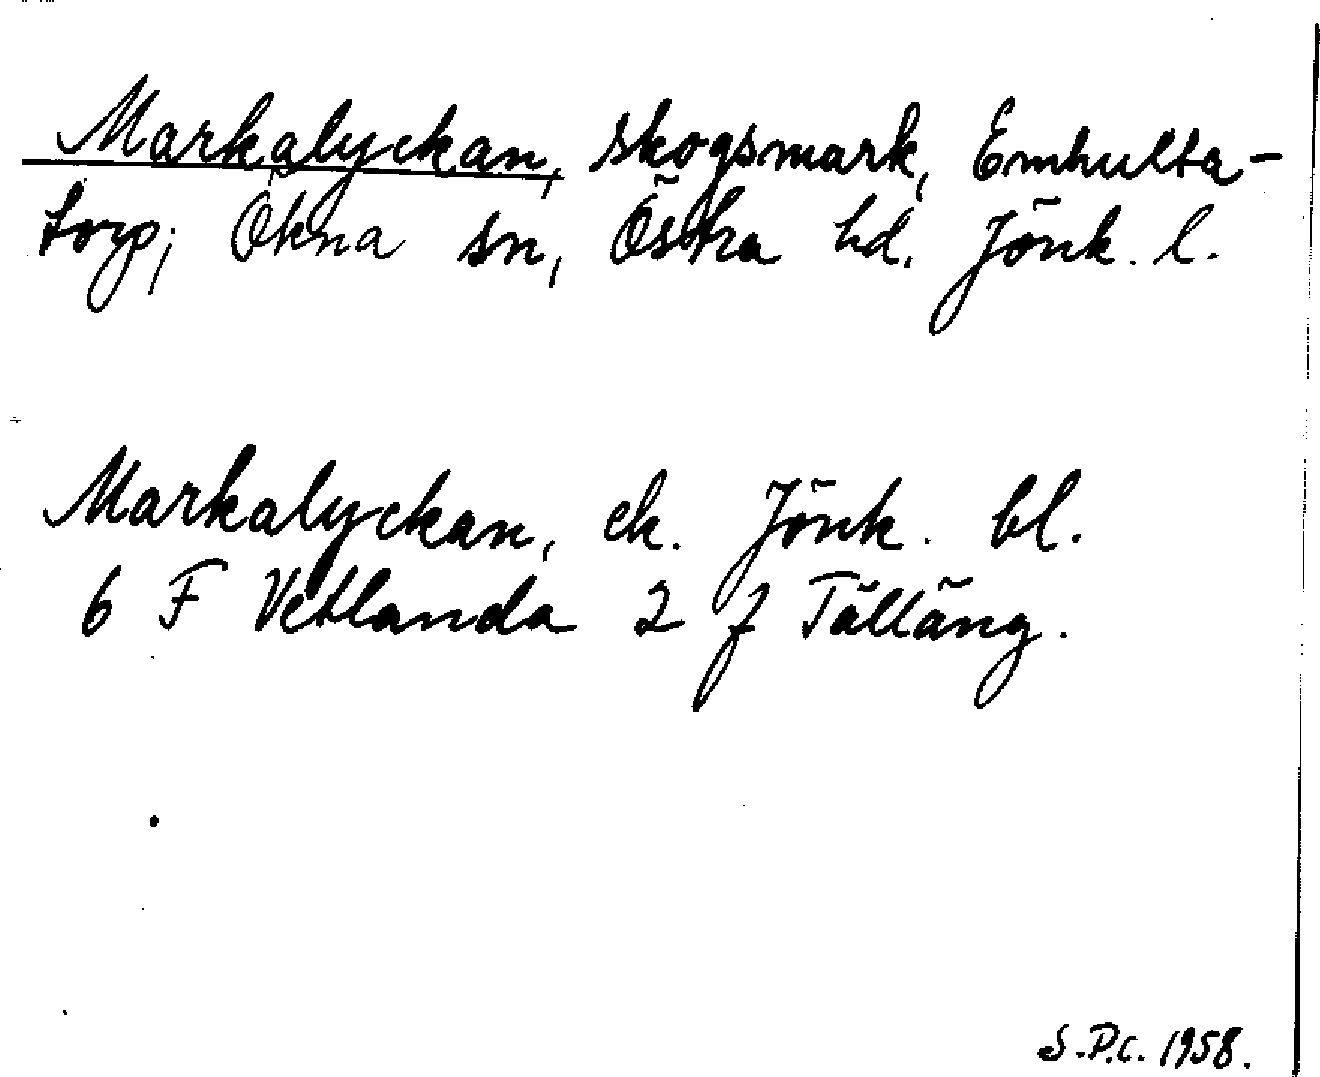 Markalyckan, skogsmark, Emhulta-
torp; Ökna sn, Östra hd. Jönk. l.
Markalyckan, ek. Jönk. bl.
6 F Vetlanda 2 f Tälläng.
S.P.C. 1958.